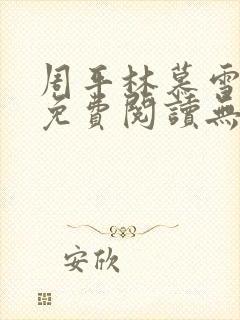 周平林慕雪
免費閱讀無
安欣